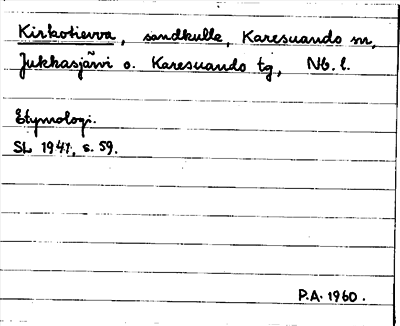 Kirkotievva, sandkulle, Karesuando sn,
Jukkasjärvi o. Karesuando tg, Nb. l.
Etymologi.
SL 1947, s. 59.
P.A. 1960.